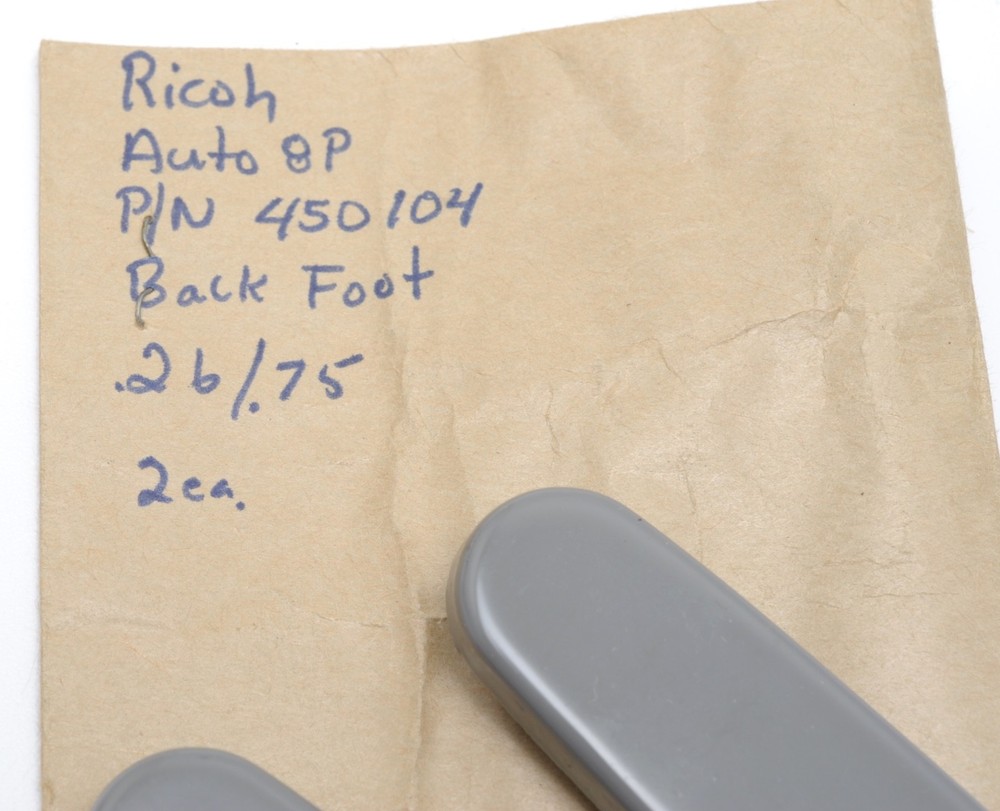 Ricoh
Auto 8P
P/N 450104
Back Foot
.26/.75
2ea.